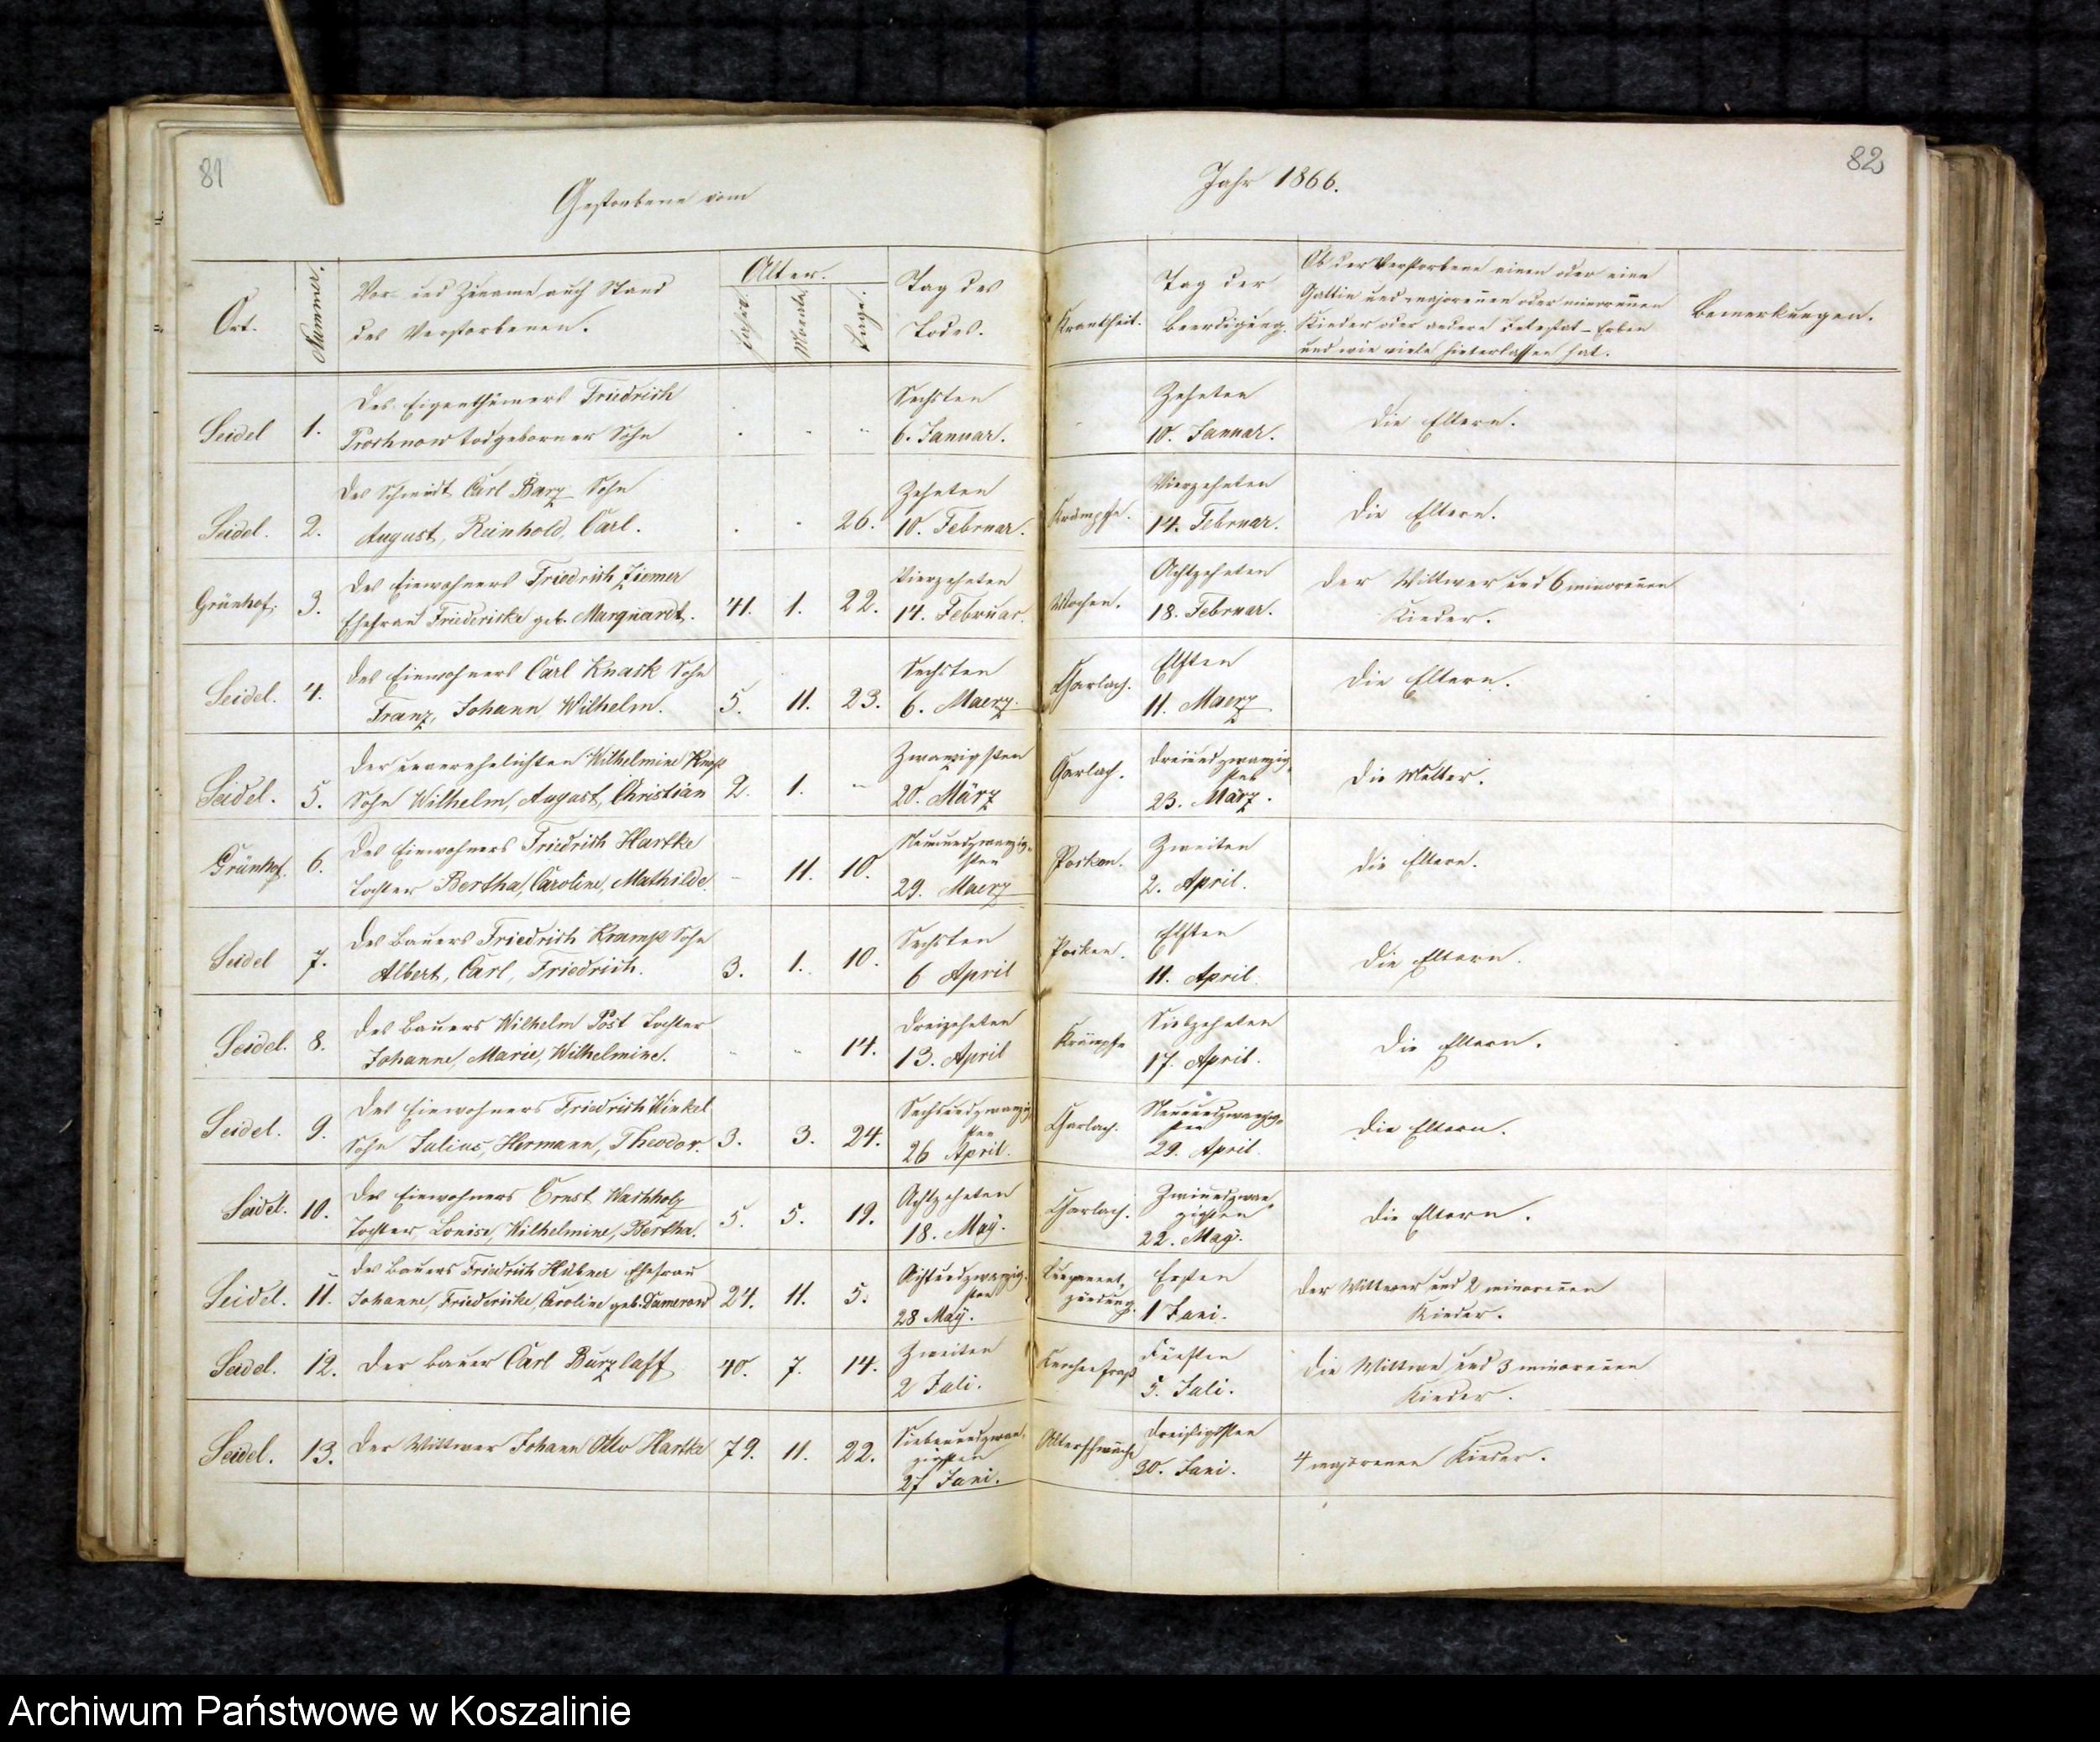 81
82
Gestorbene vom
Jahr 1866.
Ort.
Nummer.
Vor- und Zuname auch Stand
des Verstorbenen.
Alter.
Jahre.
Monate.
Tage.
Tag des
Todes.
Krankheit.
Tag der
Beerdigung.
Ob der Verstorbene einen oder eine
Gattin und majorennen oder minorennen
Kinder oder andere Intestat-Erben
und wie viele hinterlassen hat.
Bemerkungen.
Seidel 1.
Des Eigenthümers Friedrich
Prochnow todgeborner Sohn
Sechsten
6. Januar.
Zehnten
10. Januar.
Die Eltern.
Seidel. 2.
Des Schmidt Carl Barz Sohn
August, Reinhold, Carl.
26.
Zehnten
10. Februar.
Krämpfe.
Vierzehnten
14. Februar.
Die Eltern.
Grünhof. 3.
Des Einwohners Friedrich Ziemer
Ehefrau Friedericke geb. Marquardt.
41. 1. 22.
Vierzehnten
14. Februar.
Wochen.
Achtzehnten
18. Februar.
Der Wittwer und 6 minorennen
Kinder.
Seidel. 4.
Des Einwohners Carl Knask Sohn
Franz, Johann Wilhelm.
5. 11. 23.
Sechsten
6. Maerz.
Scharlach.
Elften
11. Maerz
Die Eltern.
Seidel. 5.
Der unverehelichten Wilhelmine
Sohn Wilhelm, August, Christian
2. 1. -
Zwanzigsten
20. März
Dreiundzwanzig-
sten
23. März.
Die Mutter.
Grünhof. 6.
Des Einwohners Friedrich Hartke
Tochter Bertha, Caroline, Mathilde.
- 11. 10.
Neunundzwanzig-
sten
29. Maerz
Pocken.
Zweiten
2. April.
Die Eltern.
Seidel 7.
Des Bauers Friedrich Kramp Sohn
Albert, Carl, Friedrich.
3. 1. 10.
Sechsten
6 April
Pocken.
Elften
11. April.
Die Eltern.
Seidel. 8.
Des Bauers Wilhelm Post Tochter
Johanne, Marie, Wilhelmine.
14.
Dreizehnten
13. April
Krämpfe
Siebzehnten
17. April.
Die Eltern.
Seidel. 9.
Des Einwohners Friedrich Winkel
Sohn Julius, Hermann, Theodor.
3. 3. 24.
Sechsundzwanzig-
sten
26 April.
Scharlach.
Neunundzwanzig-
sten
29. April.
Die Eltern.
Seidel. 10.
Des Einwohners Ernst Wachholz
Tochter, Louise, Wilhelmine, Bertha.
5. 5. 19.
Achtzehnten
18. May.
Scharlach.
Zweiundzwan-
zigsten
22. May.
Die Eltern.
Seidel. 11.
Des Bauers Friedrich Hübner Ehefrau
Johanne, Friedericke, Caroline geb. Damerow
24. 11. 5.
Achtundzwanzig-
sten
28 May.
Lungenent-
zündung.
Ersten
1 Juni.
Der Wittwer und 2 minorennen
Kinder.
Seidel. 12.
Der Bauer Carl Burzlaff
40. 7. 14.
Zweiten
2 Juli.
Fünften
5. Juli.
Die Wittwe und 3 minorennen
Kinder.
Seidel. 13.
Der Wittwer Johann Otto Hartke
79. 11. 22.
Siebenundzwan-
zigsten
27 Juni.
Altersschwäche
Dreißigsten
30. Juni.
4 majorennen Kinder.
Archiwum Państwowe w Koszalinie